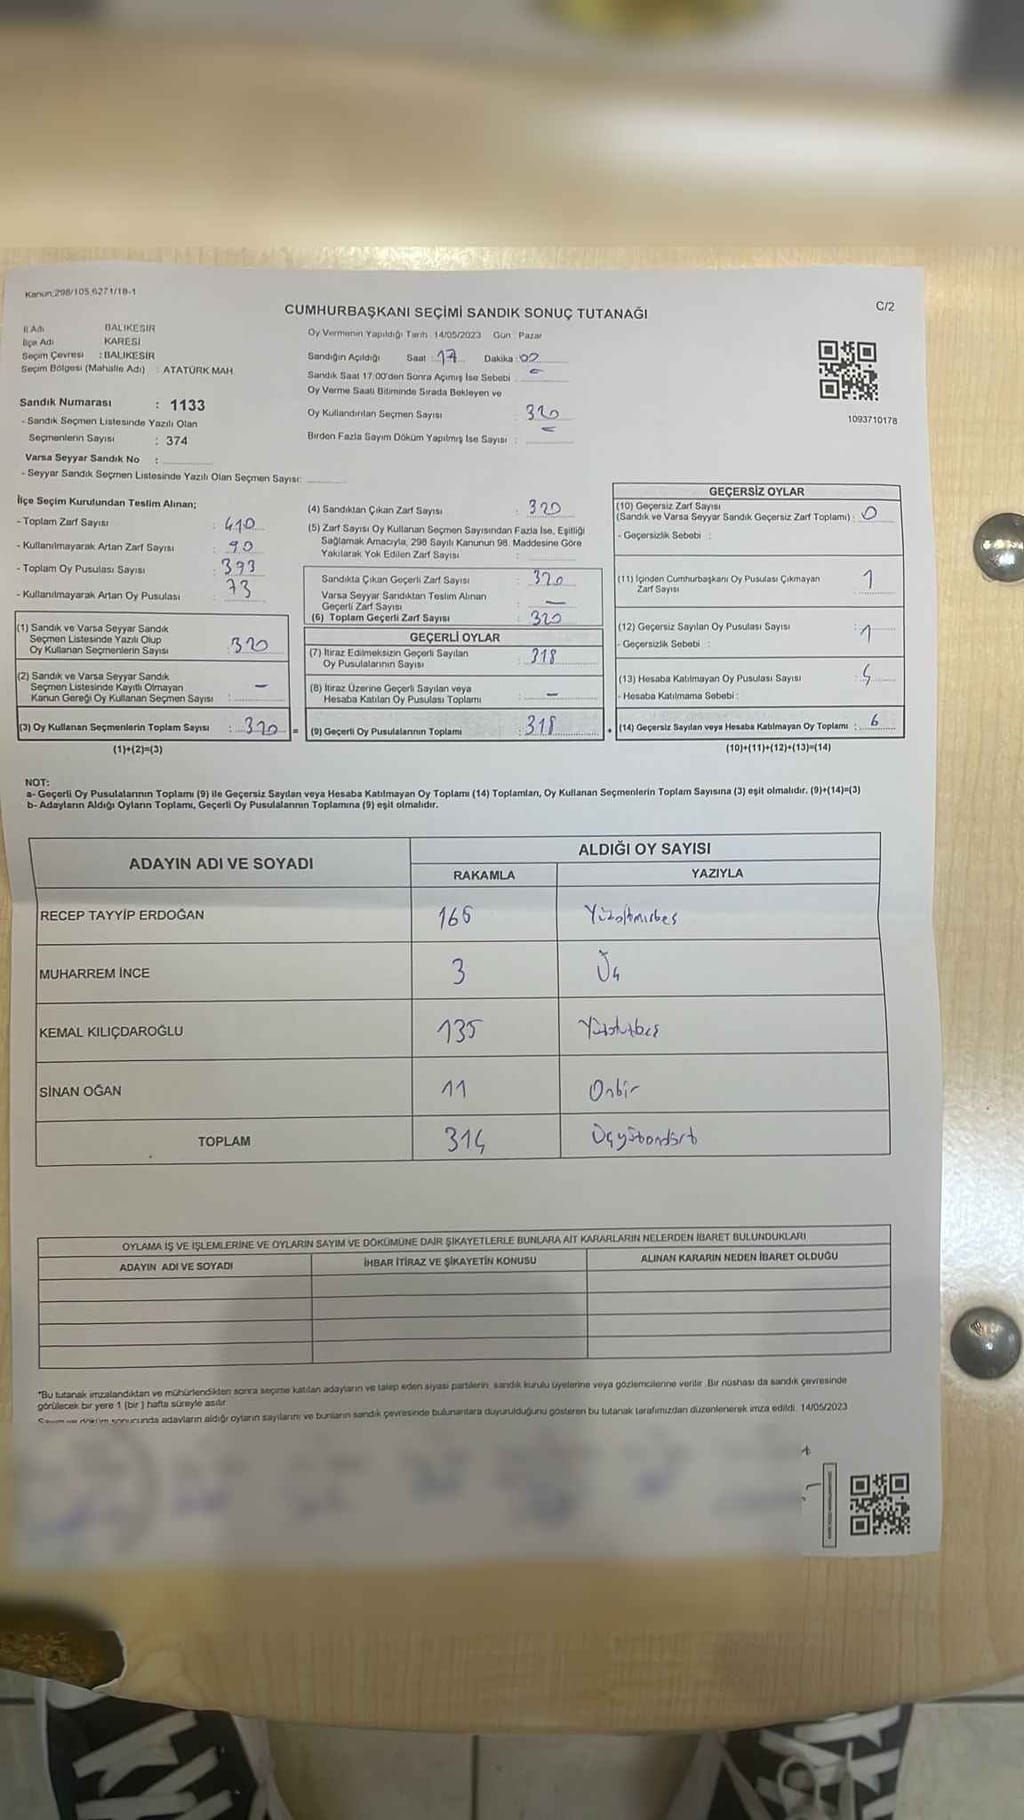 Kanun:298/105,6271/18-1
C/2
CUMHURBAŞKANI SEÇİMİ SANDIK SONUÇ TUTANAĞI
İl Adı BALIKESİR
İlçe Adı KARESİ
Seçim Çevresi : BALIKESİR
Seçim Bölgesi (Mahalle Adı) : ATATÜRK MAH.
Sandık Numarası : 1133
- Sandık Seçmen Listesinde Yazılı Olan
Seçmenlerin Sayısı : 374
Varsa Seyyar Sandık No :
- Seyyar Sandık Seçmen Listesinde Yazılı Olan Seçmen Sayısı:
Oy Vermenin Yapıldığı Tarih : 14/05/2023 Gün : Pazar
Sandığın Açıldığı Saat : 17 Dakika : 00
Sandık Saat 17:00'den Sonra Açımış İse Sebebi :
Oy Verme Saati Bitiminde Sırada Bekleyen ve
Oy Kullandırılan Seçmen Sayısı : 320
Birden Fazla Sayım Döküm Yapılmış İse Sayısı :
1093710178
İlçe Seçim Kurulundan Teslim Alınan;
- Toplam Zarf Sayısı : 410
- Kullanılmayarak Artan Zarf Sayısı : 90
- Toplam Oy Pusulası Sayısı : 393
- Kullanılmayarak Artan Oy Pusulası : 73
(1) Sandık ve Varsa Seyyar Sandık
Seçmen Listesinde Yazılı Olup
Oy Kullanan Seçmenlerin Sayısı : 320
(2) Sandık ve Varsa Seyyar Sandık
Seçmen Listesinde Kayıtlı Olmayan
Kanun Gereği Oy Kullanan Seçmen Sayısı : -
(3) Oy Kullanan Seçmenlerin Toplam Sayısı : 320 =
(1)+(2)=(3)
(4) Sandıktan Çıkan Zarf Sayısı : 320
(5) Zarf Sayısı Oy Kullanan Seçmen Sayısından Fazla İse, Eşitliği
Sağlamak Amacıyla, 298 Sayılı Kanunun 98. Maddesine Göre
Yakılarak Yok Edilen Zarf Sayısı :
Sandıkta Çıkan Geçerli Zarf Sayısı : 320
Varsa Seyyar Sandıktan Teslim Alınan
Geçerli Zarf Sayısı : -
(6) Toplam Geçerli Zarf Sayısı : 320
GEÇERLİ OYLAR
(7) İtiraz Edilmeksizin Geçerli Sayılan
Oy Pusulalarının Sayısı : 318
(8) İtiraz Üzerine Geçerli Sayılan veya
Hesaba Katılan Oy Pusulası Toplamı : -
(9) Geçerli Oy Pusulalarının Toplamı : 318 +
GEÇERSİZ OYLAR
(10) Geçersiz Zarf Sayısı
(Sandık ve Varsa Seyyar Sandık Geçersiz Zarf Toplamı) : 0
- Geçersizlik Sebebi :
(11) İçinden Cumhurbaşkanı Oy Pusulası Çıkmayan
Zarf Sayısı : 1
(12) Geçersiz Sayılan Oy Pusulası Sayısı : 1
- Geçersizlik Sebebi :
(13) Hesaba Katılmayan Oy Pusulası Sayısı :
- Hesaba Katılmama Sebebi :
(14) Geçersiz Sayılan veya Hesaba Katılmayan Oy Toplamı : 6
(10)+(11)+(12)+(13)=(14)
NOT:
a- Geçerli Oy Pusulalarının Toplamı (9) ile Geçersiz Sayılan veya Hesaba Katılmayan Oy Toplamı (14) Toplamları, Oy Kullanan Seçmenlerin Toplam Sayısına (3) eşit olmalıdır. (9)+(14)=(3)
b- Adayların Aldığı Oyların Toplamı, Geçerli Oy Pusulalarının Toplamına (9) eşit olmalıdır.
ADAYIN ADI VE SOYADI ALDIĞI OY SAYISI
RAKAMLA YAZIYLA
RECEP TAYYİP ERDOĞAN 165 Yüzaltmışbeş
MUHARREM İNCE 3 Üç
KEMAL KILIÇDAROĞLU 135 Yüzotuzbeş
SİNAN OĞAN 11 Onbir
TOPLAM 314 Üçyüzondört
OYLAMA İŞ VE İŞLEMLERİNE VE OYLARIN SAYIM VE DÖKÜMÜNE DAİR ŞİKAYETLERLE BUNLARA AİT KARARLARIN NELERDEN İBARET BULUNDUKLARI
ADAYIN ADI VE SOYADI İHBAR İTİRAZ VE ŞİKAYETİN KONUSU ALINAN KARARIN NEDEN İBARET OLDUĞU
*Bu tutanak imzalandıktan ve mühürlendikten sonra seçime katılan adayların ve talep eden siyasi partilerin, sandık kurulu üyelerine veya gözlemcilerine verilir. Bir nüshası da sandık çevresinde
görülecek bir yere 1 (bir) hafta süreyle asılır.
Sayım ve döküm sonucunda adayların aldığı oyların sayılarını ve bunların sandık çevresinde bulunanlara duyurulduğunu gösteren bu tutanak tarafımızdan düzenlenerek imza edildi. 14/05/2023